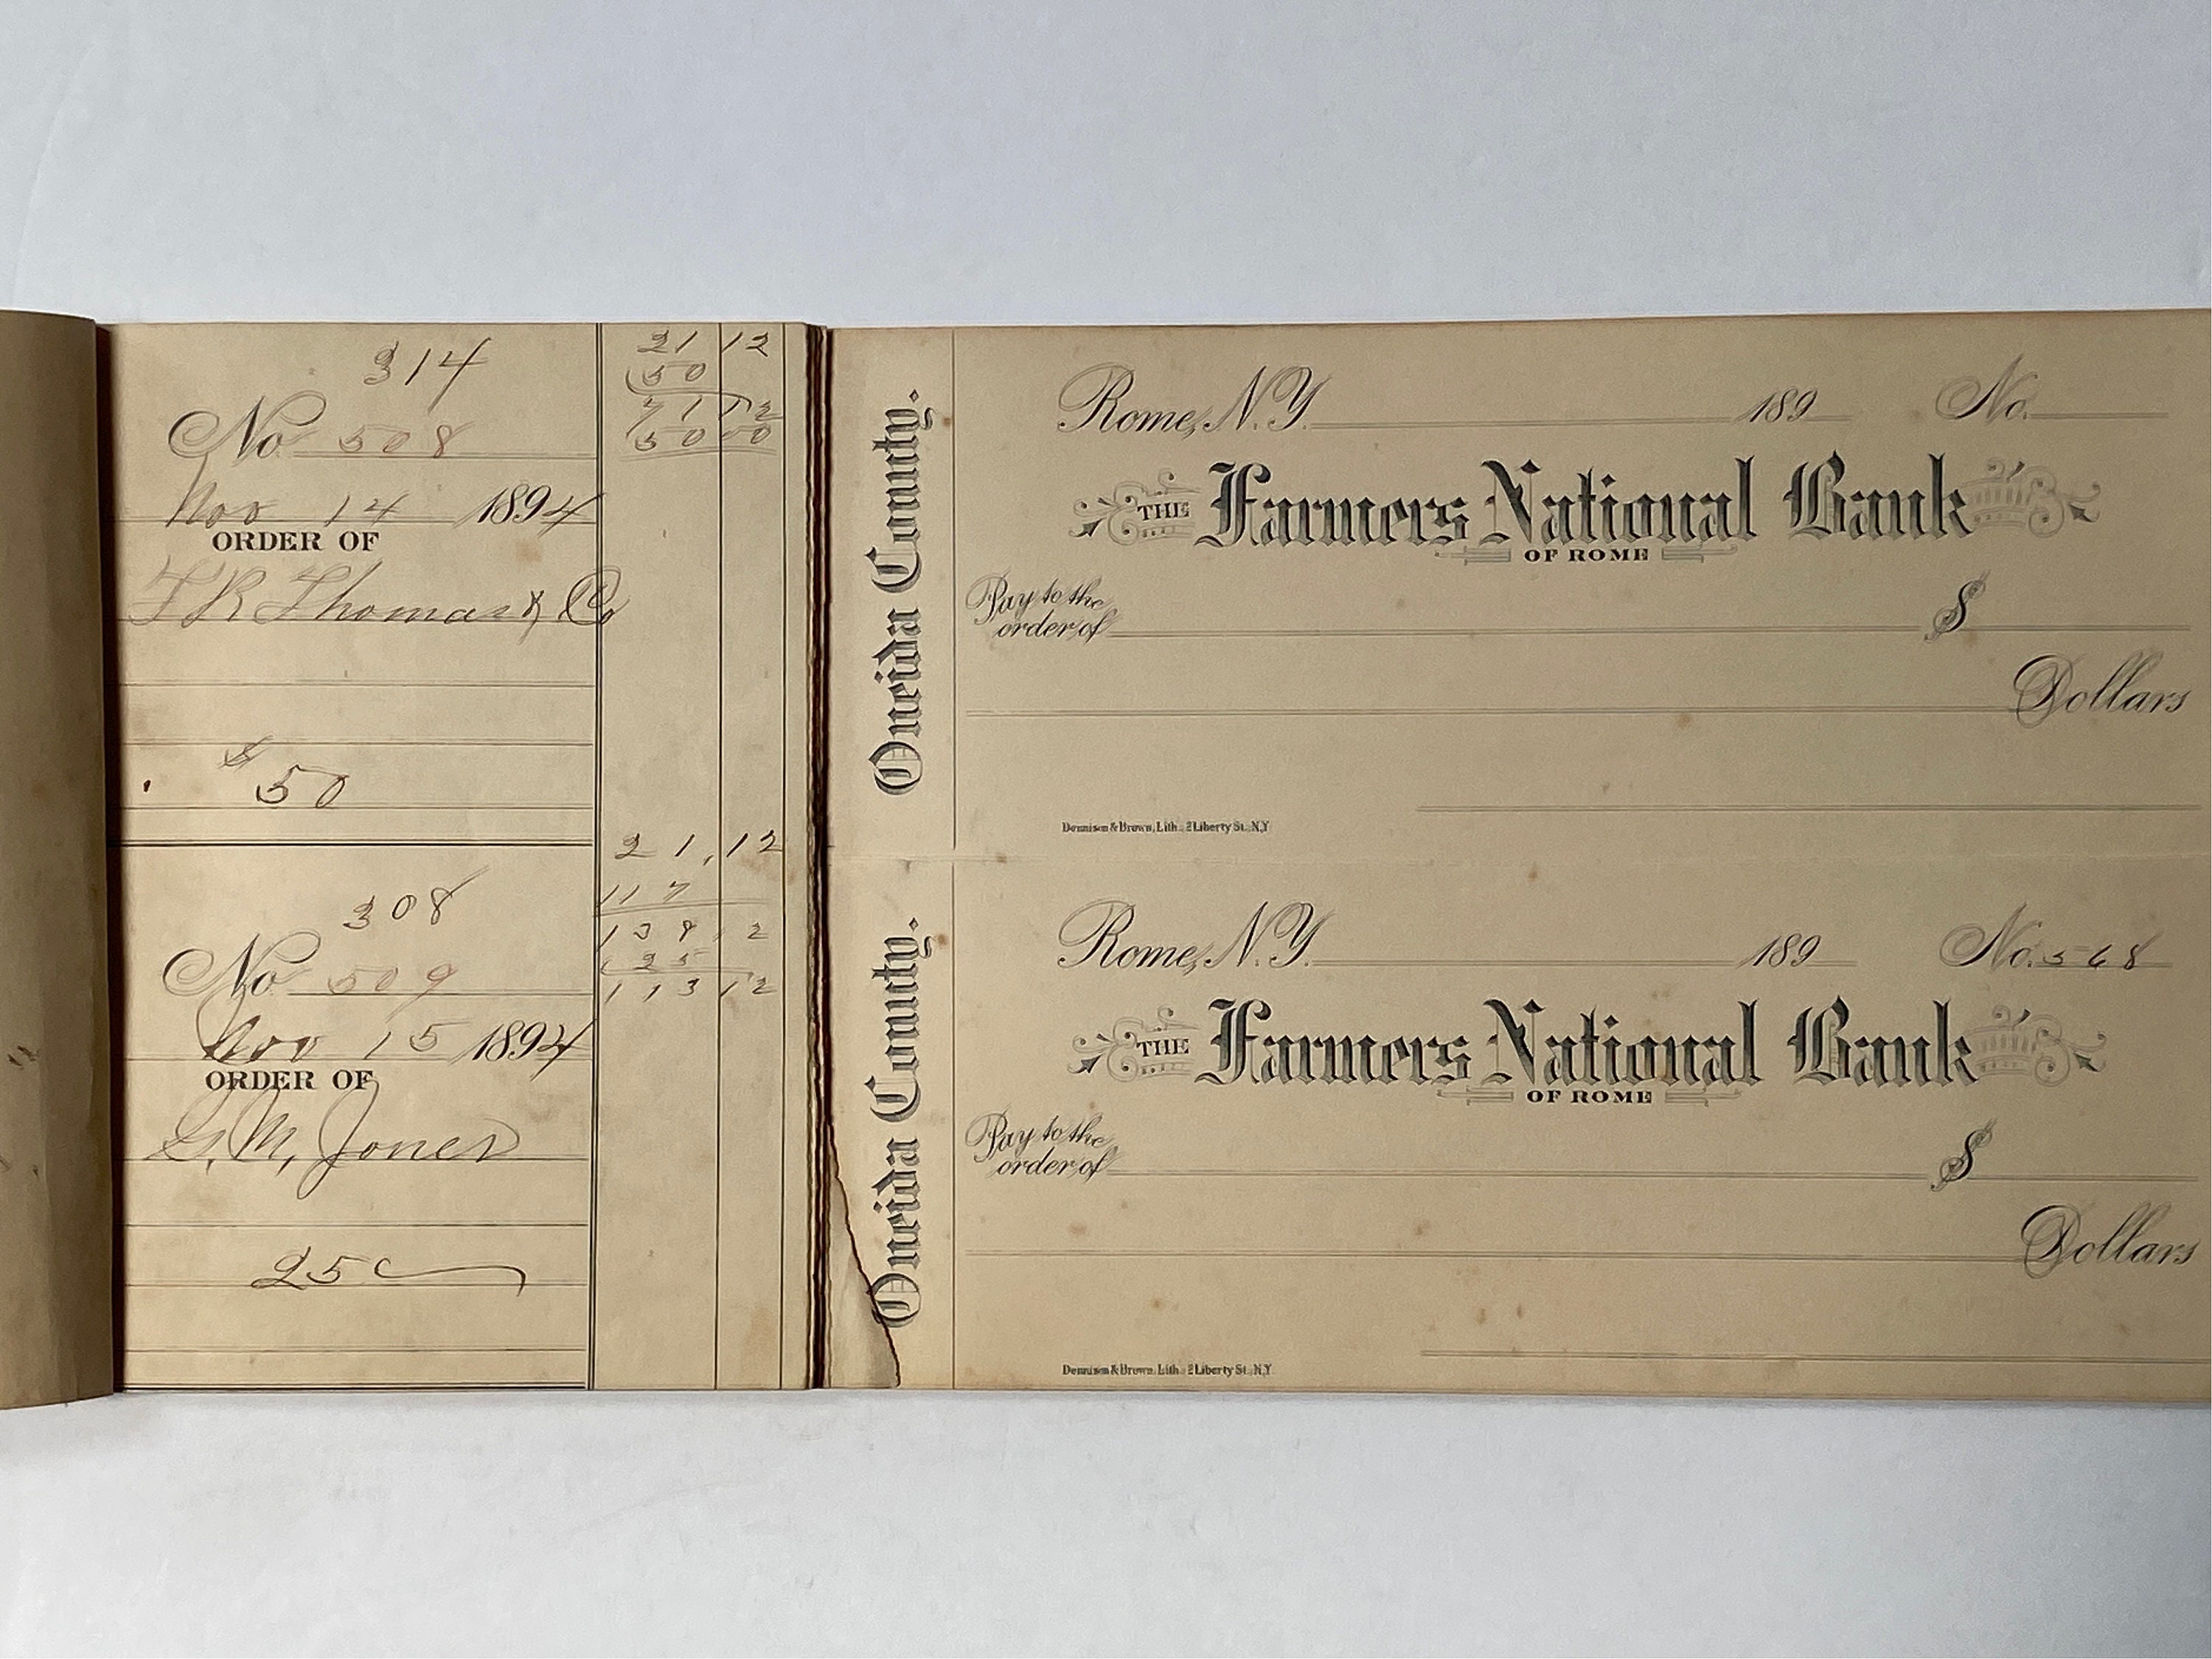 314
No 508
Nov 14 1894
ORDER OF
T R Thomas & Co
$ 50
21 12
50
71 12
50 00
308
No 509
Nov 15 1894
ORDER OF
G. M. Jones
25
21,12
117
138 12
25
113 12
Oneida County.
Rome, N.Y. 189 No.
THE Farmers National Bank
OF ROME
Pay to the
order of $
Dollars
Dennison & Brown, Lith. 2 Liberty St. N.Y
Oneida County.
Rome, N.Y. 189 No. 568
THE Farmers National Bank
OF ROME
Pay to the
order of $
Dollars
Dennison & Brown, Lith. 2 Liberty St. N.Y